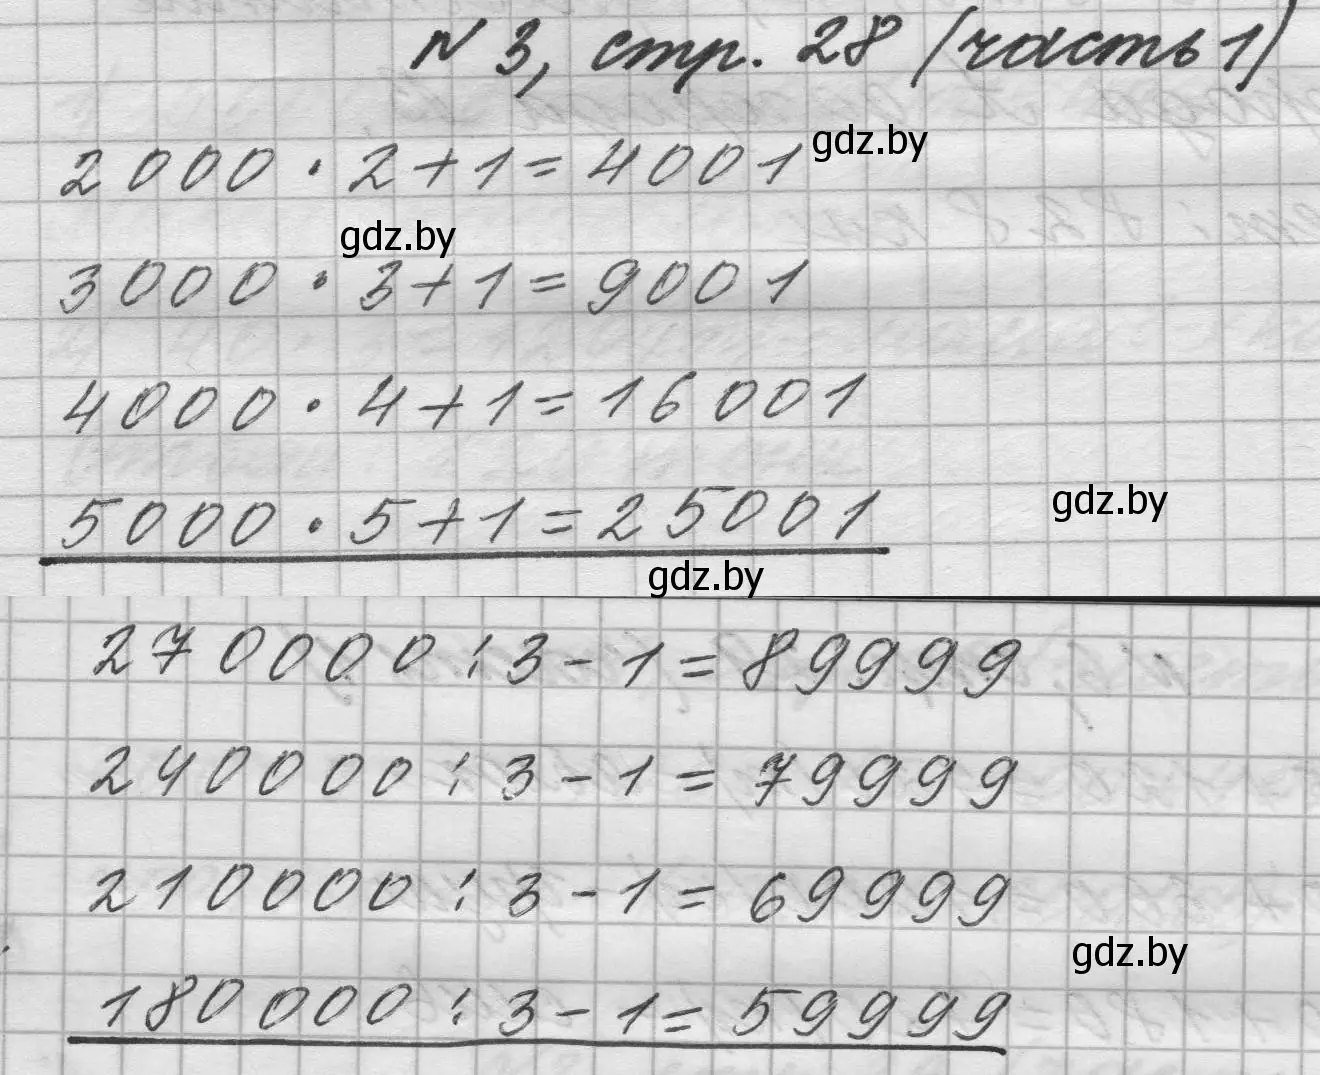 N 3, стр. 28 (часть 1)
2000 · 2 + 1 = 4001 gdz.by
gdz.by
3000 · 3 + 1 = 9001
4000 · 4 + 1 = 16001
5000 · 5 + 1 = 25001 gdz.by
gdz.by
270000 : 3 - 1 = 89999
240000 : 3 - 1 = 79999
210000 : 3 - 1 = 69999
gdz.by
180000 : 3 - 1 = 59999